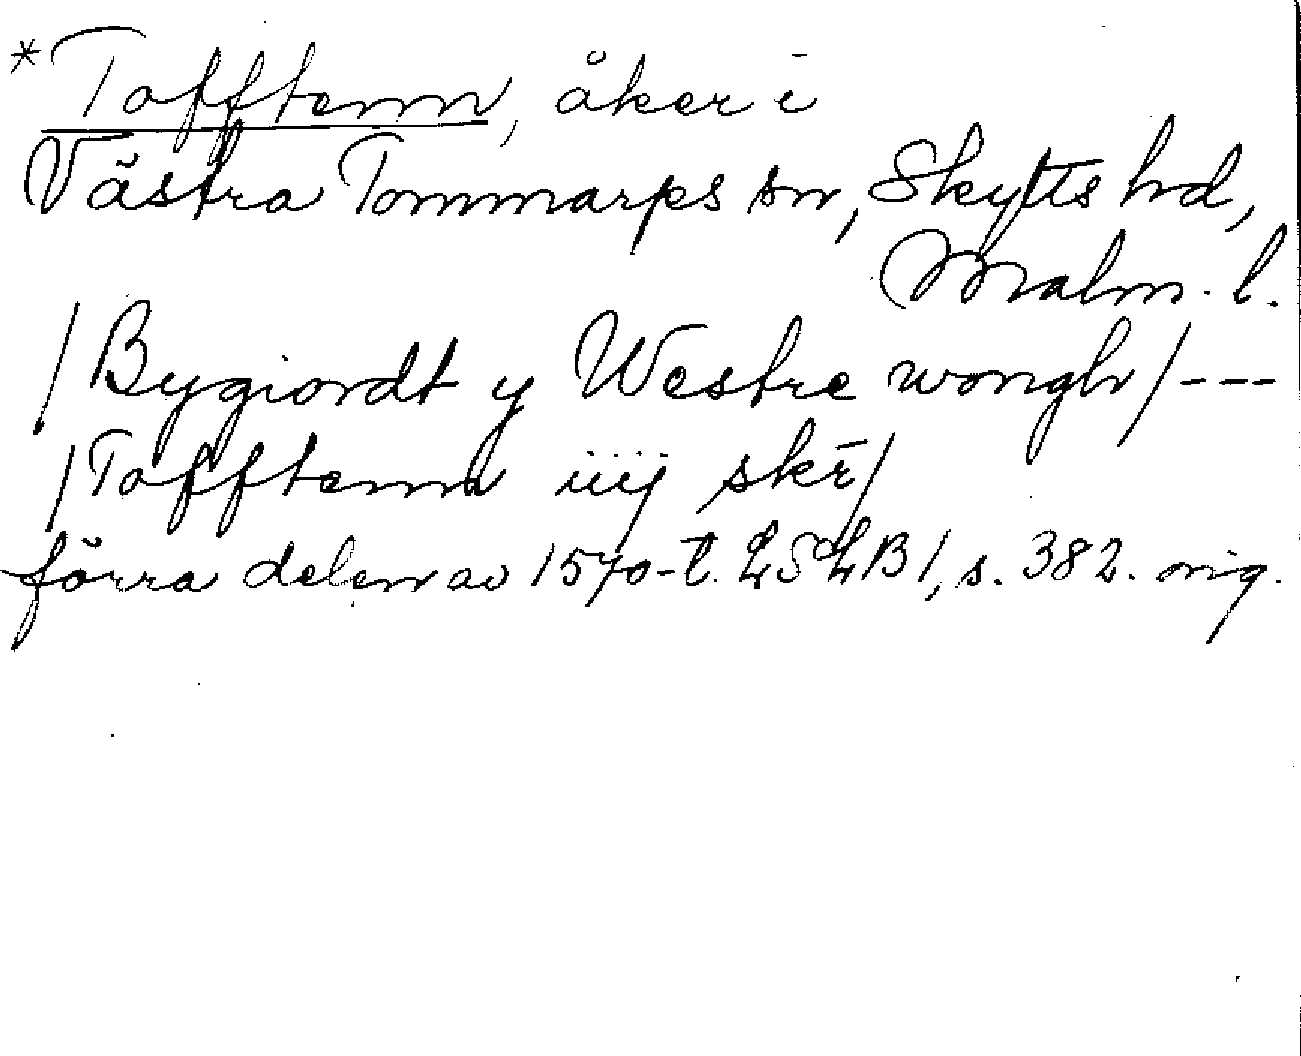 *Tofftenn, åker i
Västra Tommarps sn, Skytts hd,
Malm. l.
/Bygiordt y Westre wongh/---
/Tofftenn iiij skr̄/
förra delen av 1570-t. LSLB 1, s. 382. orig.